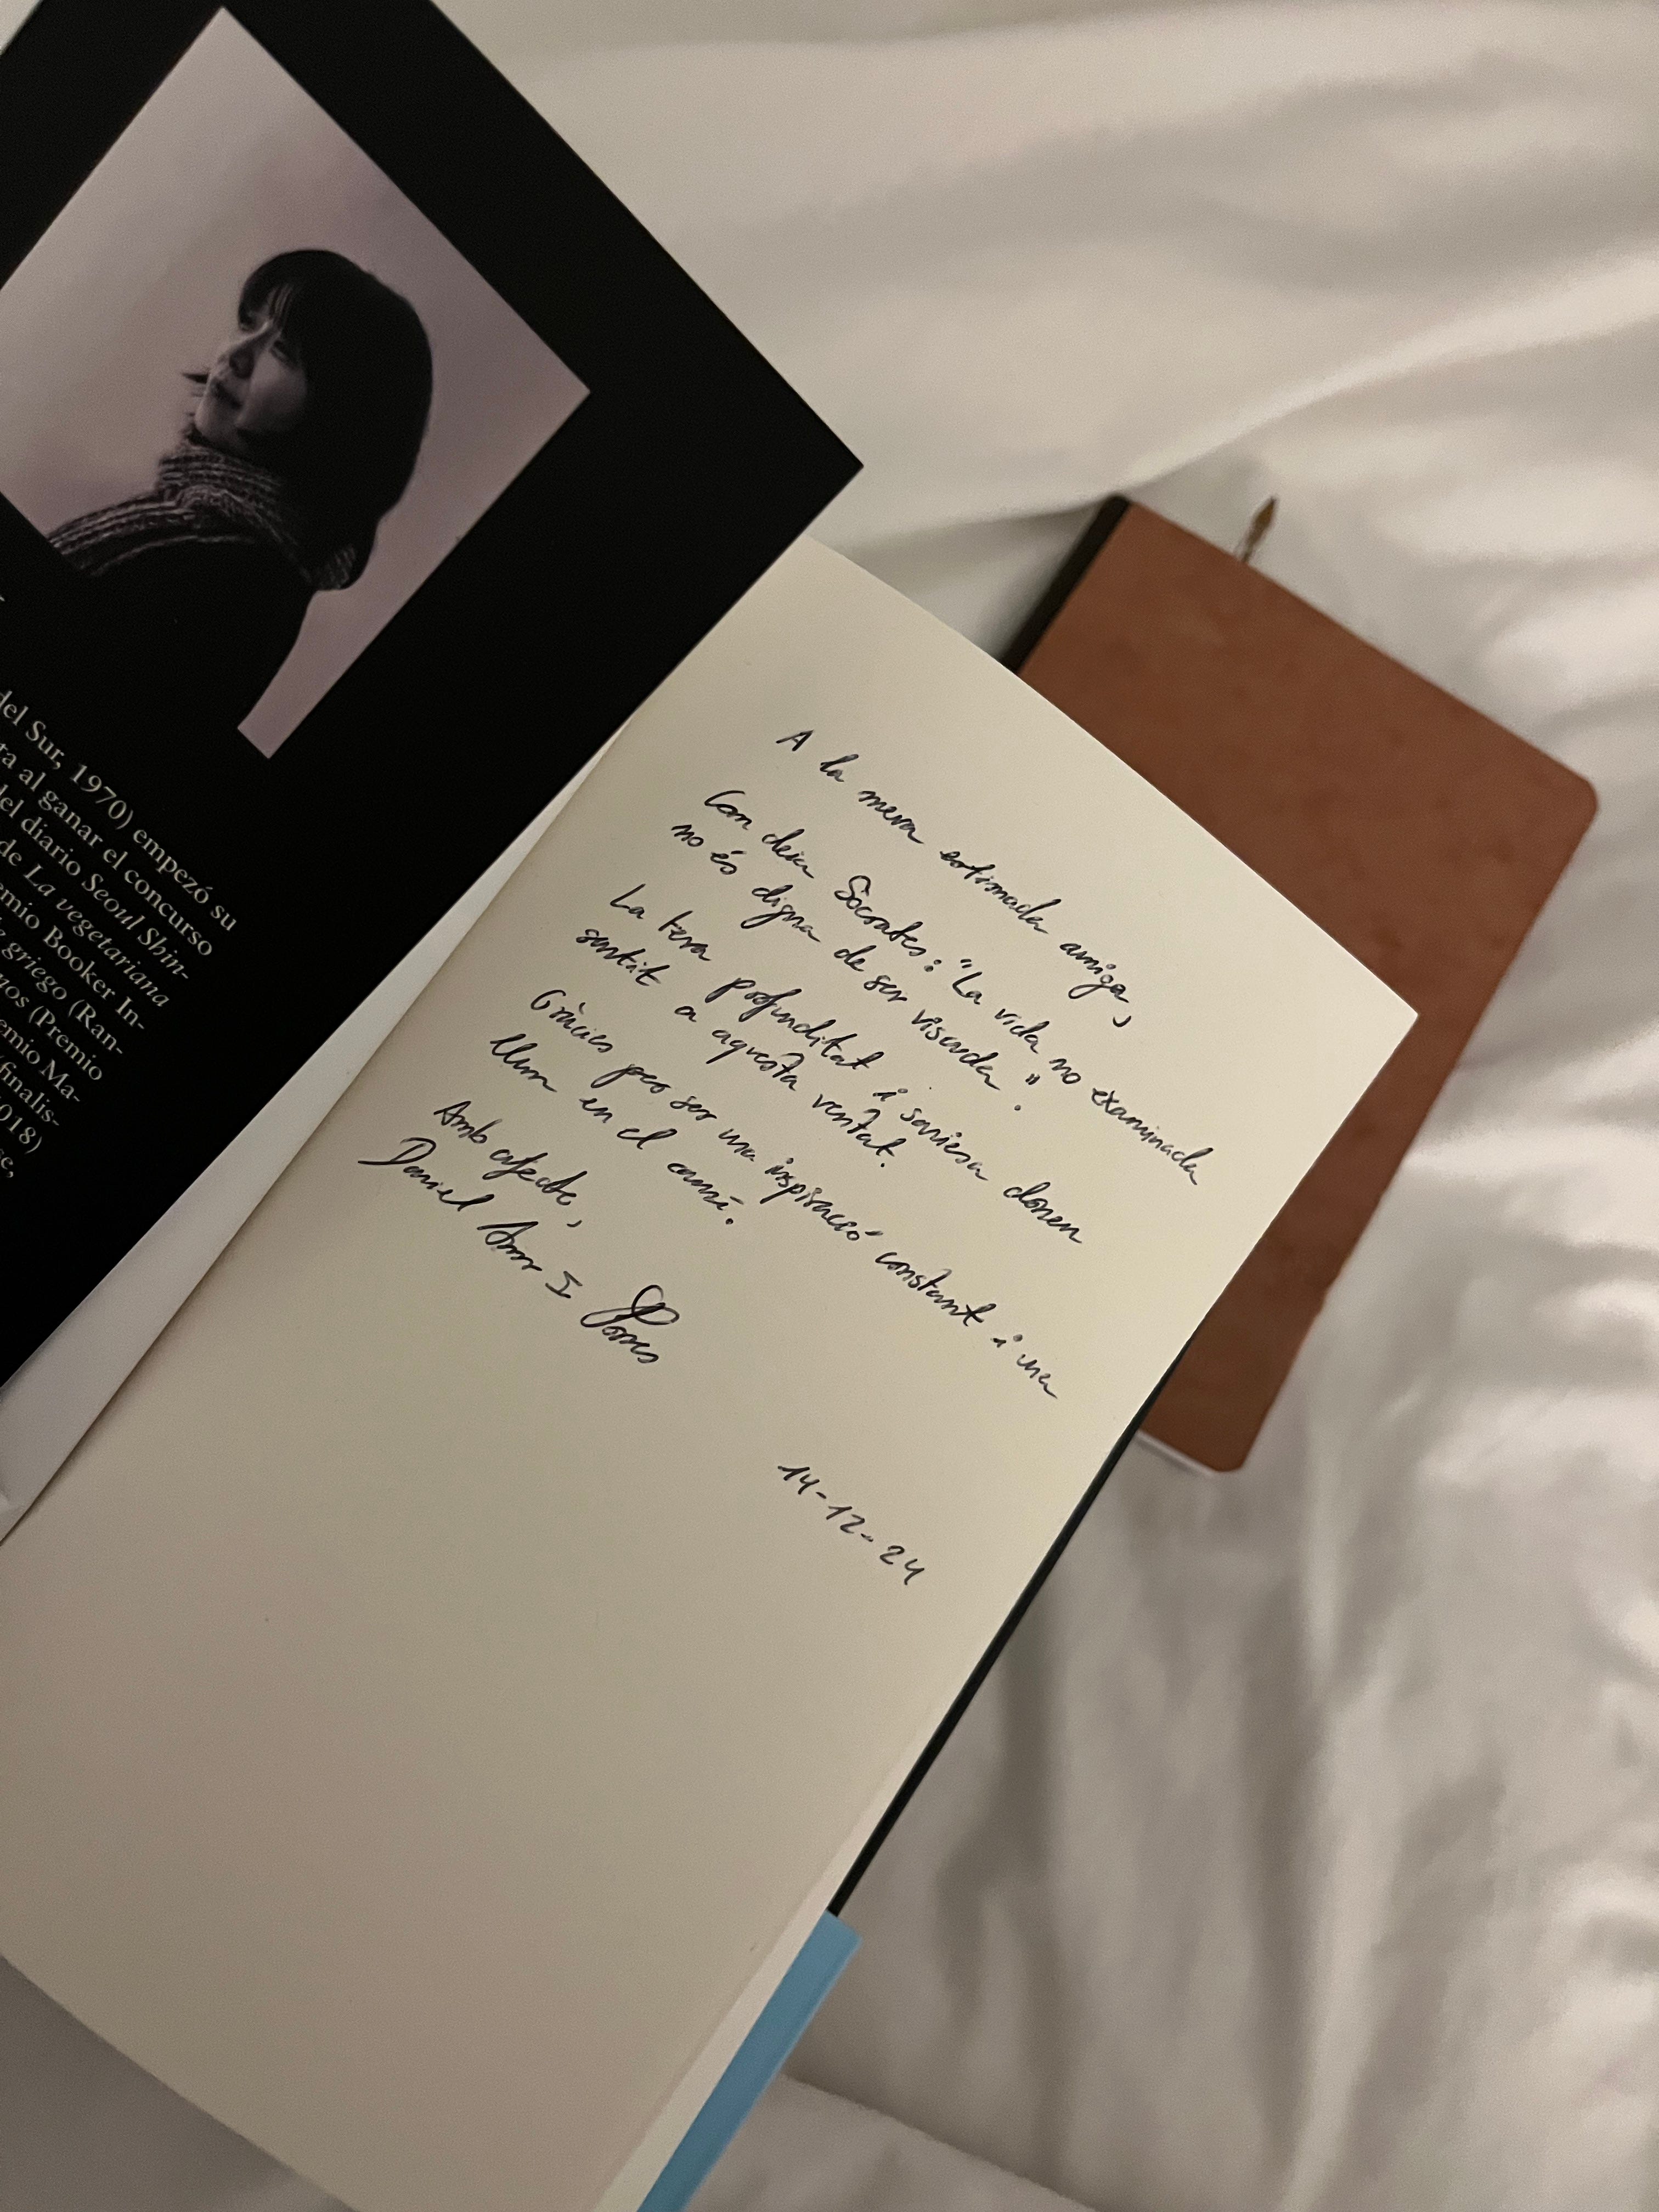 del Sur, 1970) empezó su
ta al ganar el concurso
del diario Seoul Shin-
de La vegetariana
emio Booker In-
griego (Ran-
mos (Premio
emio Ma-
(finalis-
2018)
se,
A la meva estimada amiga,
Com deia Sòcrates: "La vida no examinada
no és digna de ser viscuda".
La teva profunditat i saviesa donen
sentit a aquesta veritat.
Gràcies per ser una inspiració constant i una
llum en el camí.
Amb afecte,
Daniel I
14-12-24